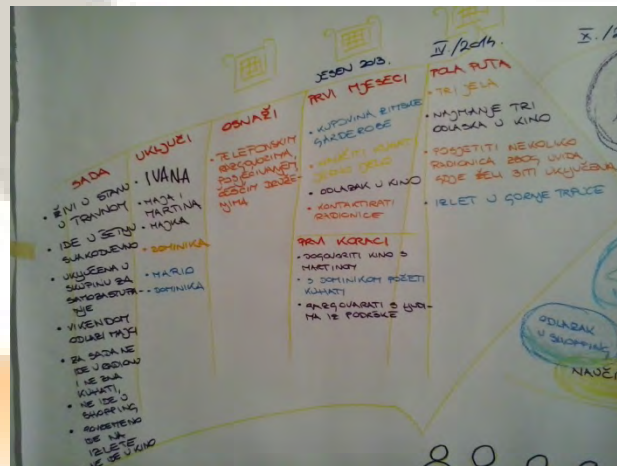 SADA
• ŽIVI U STANU
U TRAVNOM
• IDE U ŠETNJU
SVAKODNEVNO
• UKLJUČENA U
SKUPINU ZA
SAMOZASTUPA-
NJE
• VIKENDOM
ODLAZI MAJCI
• ZA SADA NE
IDE U RADION
I NE ZNA
KUHATI,
• NE IDE U
SHOPPING
• POVREMENO
IDE NA
IZLETE
NE IDE U KINO
UKLJUČI
• IVANA
• MAJA I
MARTINA
• MAJKA
• DOMINIKA
• MARIO
• DOMINIKA
OSNAŽI
• TELEFONSKIM
RAZGOVORIMA,
PODSJEĆIVANJEM
ČEŠĆIM DRUŽE-
NJIMA
JESEN 2013.
PRVI MJESECI
• KUPOVINA ZIMSKE
GARDEROBE
• NAUČITI KUHATI
JEDNO JELO
• ODLAZAK U KINO
• KONTAKTIRATI
RADIONICE
PRVI KORACI
• DOGOVORITI KINO S
MARTINOM
• S DOMINIKOM POČETI
KUHATI
• RAZGOVARATI S LJUDI-
MA IZ PODRŠKE
IV/2014.
POLA PUTA
• TRI JELA
• NAJMANJE TRI
ODLASKA U KINO
• POSJETITI NEKOLIKO
RADIONICA ZBOG UVIDA
GDJE ŽELI BITI UKLJUČENA
• IZLET U GORNJE
X./2
ODLAZAK
U SHOPPING
NAUČI